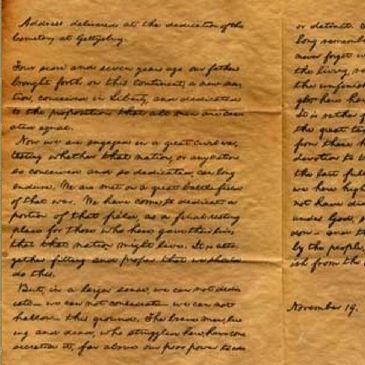 Address delivered at the dedication of the
Cemetery at Gettysburg.
Four score and seven years ago our fathers
brought forth on this continent, a new na-
tion, conceived in Liberty, and dedicated
to the proposition that all men are cre-
ated equal.
Now we are engaged in a great civil war,
testing whether that nation, or any nation
so conceived and so dedicated, can long
endure. We are met on a great battle-field
of that war. We have come to dedicate a
portion of that field, as a final resting
place for those who here gave their lives
that that nation might live. It is alto-
gether fitting and proper that we should
do this.
But, in a larger sense, we can not dedi-
cate— we can not consecrate— we can not
hallow— this ground. The brave men, liv-
ing and dead, who struggled here, have con-
secrated it, far above our poor power to add
or detract.
long remember
never forget
the living,
the unfinish
who here ha
It is rather f
the great ta
from these h
devotion to
the last full
we here high
not have di
under God, s
dom— and th
by the people,
ish from the
November 19.